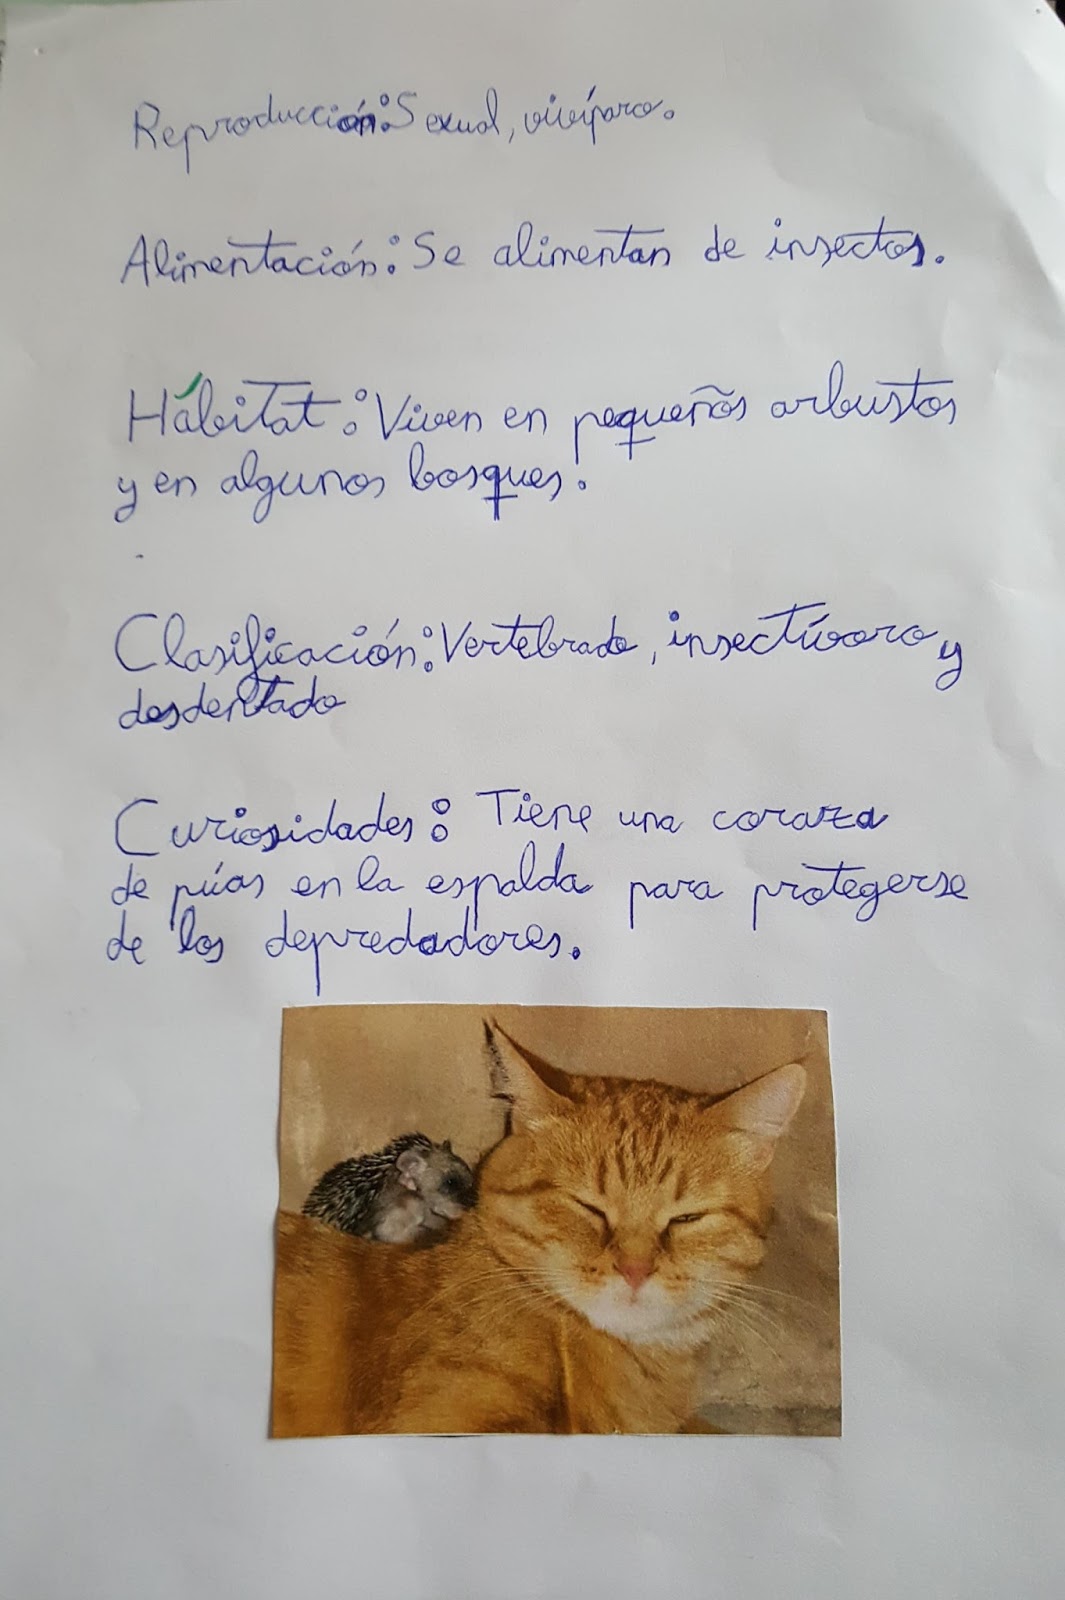 Reproducción: Sexual, vivíparo.
Alimentación: Se alimentan de insectos.
Hábitat: Viven en pequeños arbustos
y en algunos bosques.
Clasificación: Vertebrado, insectívoro y
desdentado
Curiosidades: Tiene una coraza
de púas en la espalda para protegerse
de los depredadores.